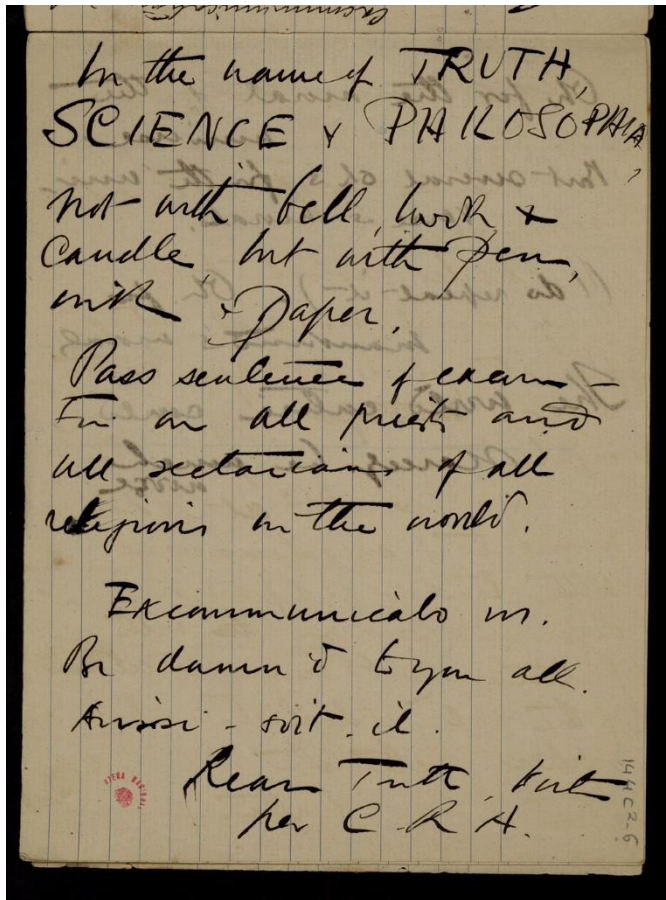 In the name of TRUTH,
SCIENCE & PHILOSOPHIA,
not with bell, book &
candle, but with pen,
ink & paper.
Pass sentence of excom-
on all priests and
all sectarians of all
religions in the world.
Excommunicato
Be damn'd to you all.
Aussi - soit - il.
Truth,
per C R H.
14 4 C 2-6